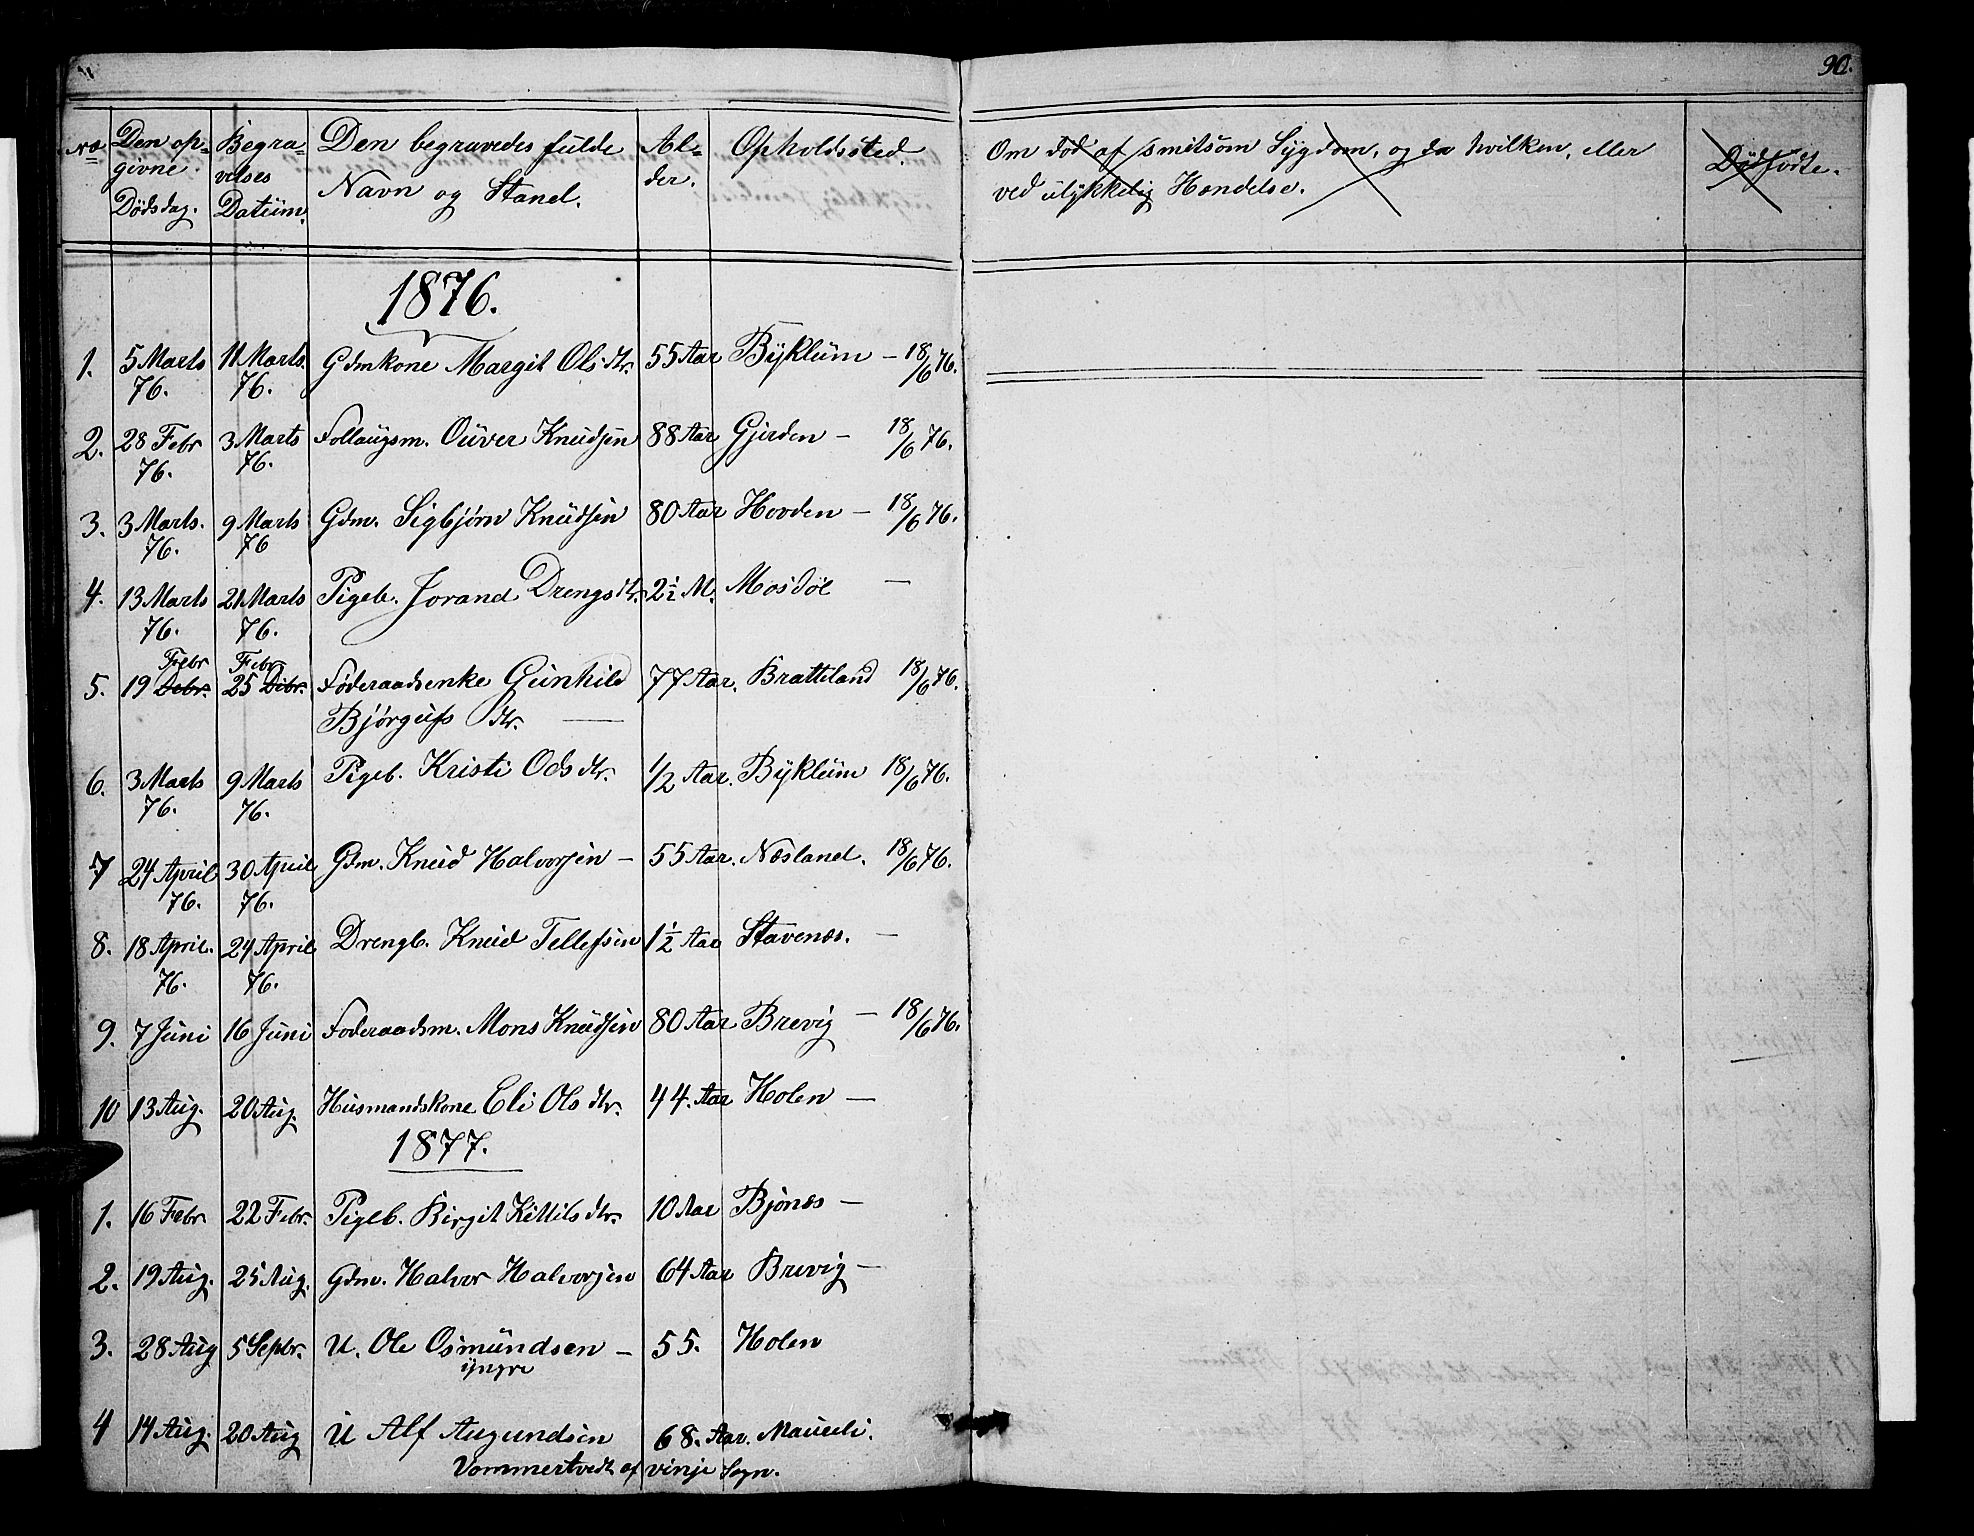 90.
No Den op- Begra- Den begravedes fulde Al- Opholdssted. Om død af smitsom Sygdom, og da hvilken, eller Dødfødte.
givne velses Navn og Stand. der. ved ulykkelig Hændelse.
Dødsdag. Datum.
1876.
1. 5 Marts 11 Marts. Gdmkone Margit Olsdtr. 55 Aar Byklum – 18/6 76.
76. 76.
2. 28 Febr 3 Marts Follaugsm. Ouver Knudsen 88 Aar Gjerden – 18/6 76.
76. 76.
3. 3 Marts. 9 Marts Gdm. Sigbjørn Knudsen 80 Aar Hovden – 18/6 76.
76. 76
4. 13 Marts 21 Marts Pigeb. Jorand Drengsdtr. 2½ M. Mosdøl –
76. 76.
Febr Febr
5. 19 Debr. 25 Debr. Føderaadsenke Gunhild 77 Aar. Bratteland 18/6 76.
Bjørgufs dtr. –
6. 3 Marts 9 Marts Pigeb. Kristi Ods dtr. 1/2 Aar. Byklum 18/6 76.
76. 76.
7 24 April 30 April Gdm. Knud Halvorsen – 55 Aar. Næsland. 18/6 76.
76. 76.
8. 18 April. 24 April Drengb. Knud Tellefsen 1½ Aar Stavenæs. –
76. 76.
9. 7 Juni 16 Juni Foderaadsm. Mons Knudsen 80 Aar Brevig – 18/6 76.
10 13 Aug. 20 Aug. Husmandskone Eli Ols dtr. 44. Aar Holen –
1877.
1. 16 Febr 22 Febr. Pigeb. Birgit Kittils dtr. 10 Aar Bjønæs –
2. 19 Aug. 25 Aug. Gdm. Halvor Halvorsen 64 Aar Brevig –
3. 28 Aug 5 Septr. U. Ole Osmundsen – 55. Holen
yngre
4 14 Aug. 20 Aug U Alf Augundsen 68. Aar. Maureli.
Vommertvedt af vinje Sogn.